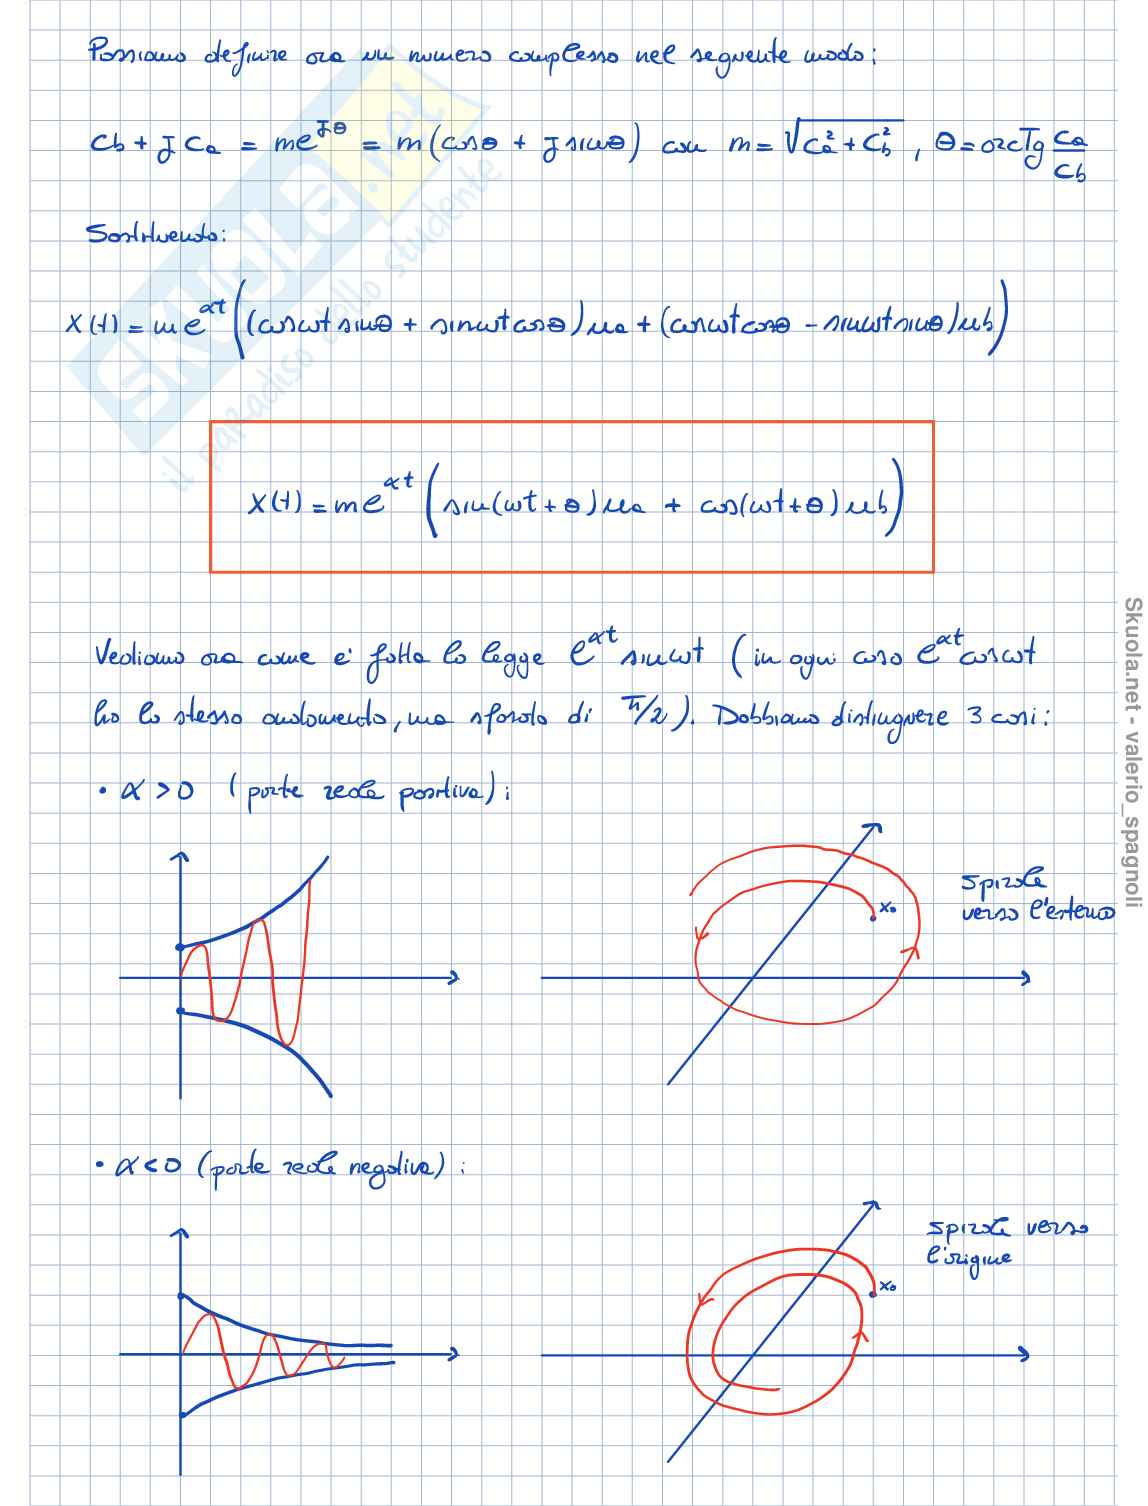 Possiamo definire ora un numero complesso nel seguente modo:
Cb + J Ca = me^Jθ = m(cosθ + J sinθ) con m = √(Ca² + Cb²), θ = arcTg Ca/Cb
Sostituendo:
X(t) = me^αt ((cosωt sinθ + sinωt cosθ)ua + (cosωt cosθ - sinωt sinθ)ub)
X(t) = me^αt (sin(ωt + θ)ua + cos(ωt + θ)ub)
Vediamo ora come e' fatta la legge e^αt sinωt (in ogni caso e^αt cosωt
ha lo stesso andamento, ma sfasato di π/2). Dobbiamo distinguere 3 casi:
• α > 0 (parte reale positiva):
spirale
verso l'esterno
x₀
• α < 0 (parte reale negativa):
spirale verso
l'origine
x₀
SKUOLA.net
il paradiso dello studente
Skuola.net - valerio_spagnoli